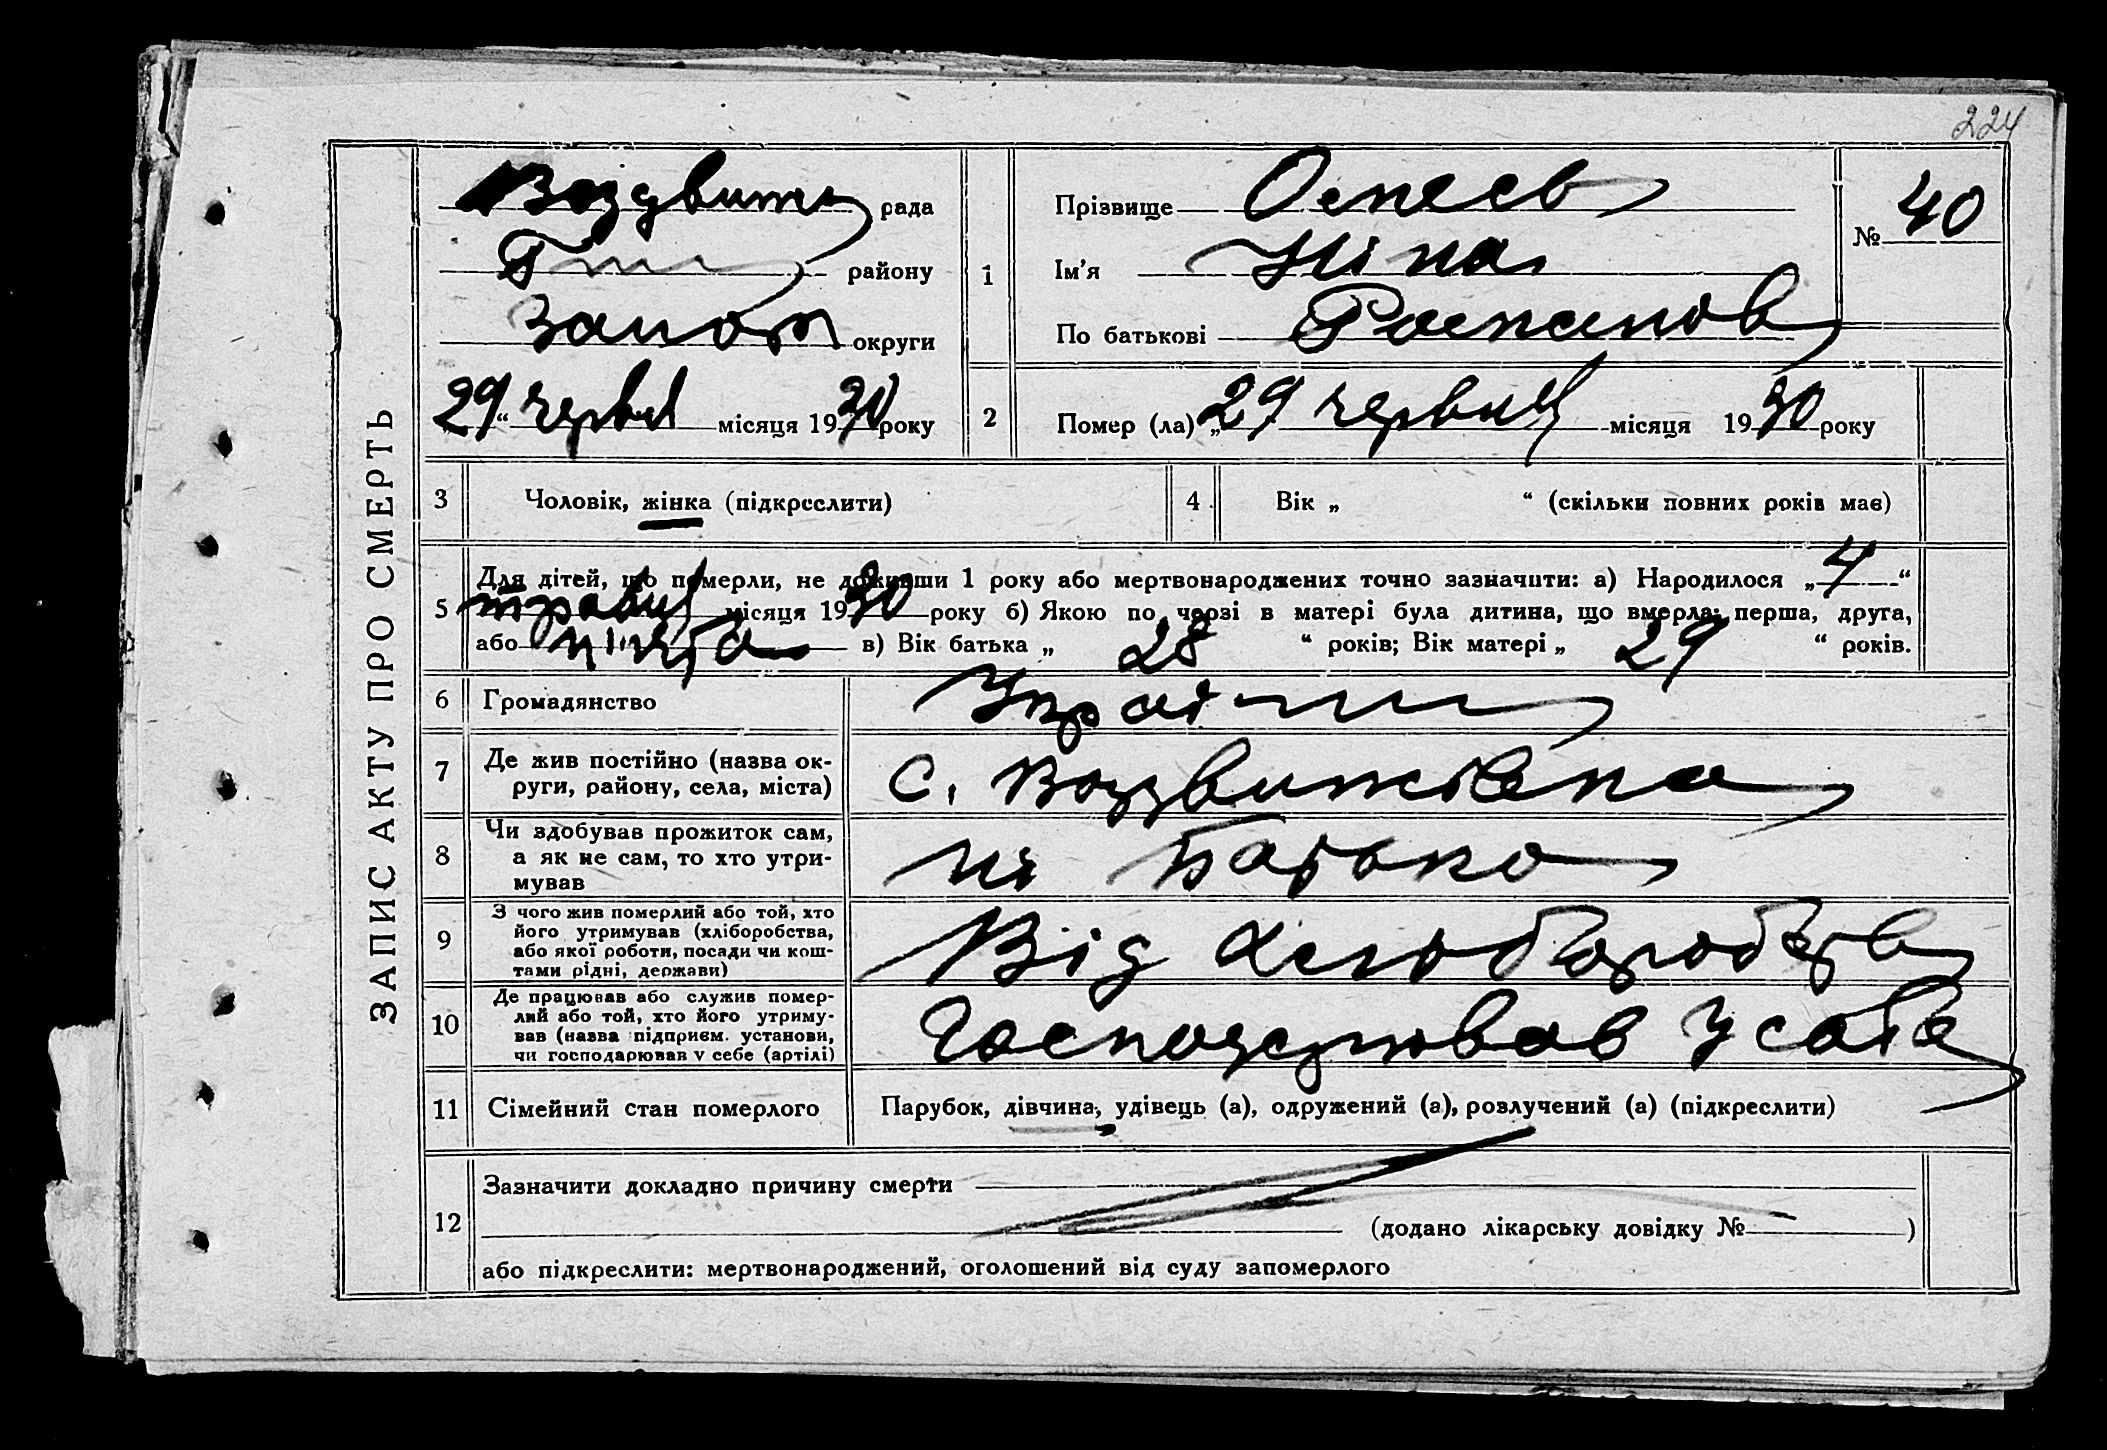 224
ЗАПИС АКТУ ПРО СМЕРТЬ
Воздвиж рада
району
Запор округи
29 “ червня місяця 1930 року
1
Прізвище
Ім’я Ніна
По батькові
№ 40
2 Помер (ла) „29 червня місяця 1930 року
3 Чоловік, жінка (підкреслити)
4 Вік „ “ (скільки повних років має)
5 Для дітей, що померли, не доживши 1 року або мертвонароджених точно зазначити: а) Народилося „4“
травня місяця 1930 року б) Якою по черзі в матері була дитина, що вмерла: перша, друга,
або п’ята в) Вік батька „ 28 “ років; Вік матері „ 29 “ років.
6 Громадянство Україн
7 Де жив постійно (назва ок-
руги, району, села, міста)
с. Воздвижівка
8 Чи здобував прожиток сам,
а як не сам, то хто утри-
мував
ні Батько
9 З чого жив померлий або той, хто
його утримував (хліборобства,
або якої роботи, посади чи кош-
тами рідні, держави)
Від хліборобства
10 Де працював або служив помер-
лий або той, хто його утриму-
вав (назва підприєм. установи,
чи господарював у себе (артілі)
Господарював у себе
11 Сімейний стан померлого Парубок, дівчина, удівець (а), одружений (а), розлучений (а) (підкреслити)
12 Зазначити докладно причину смерти
(додано лікарську довідку № )
або підкреслити: мертвонароджений, оголошений від суду запомерлого